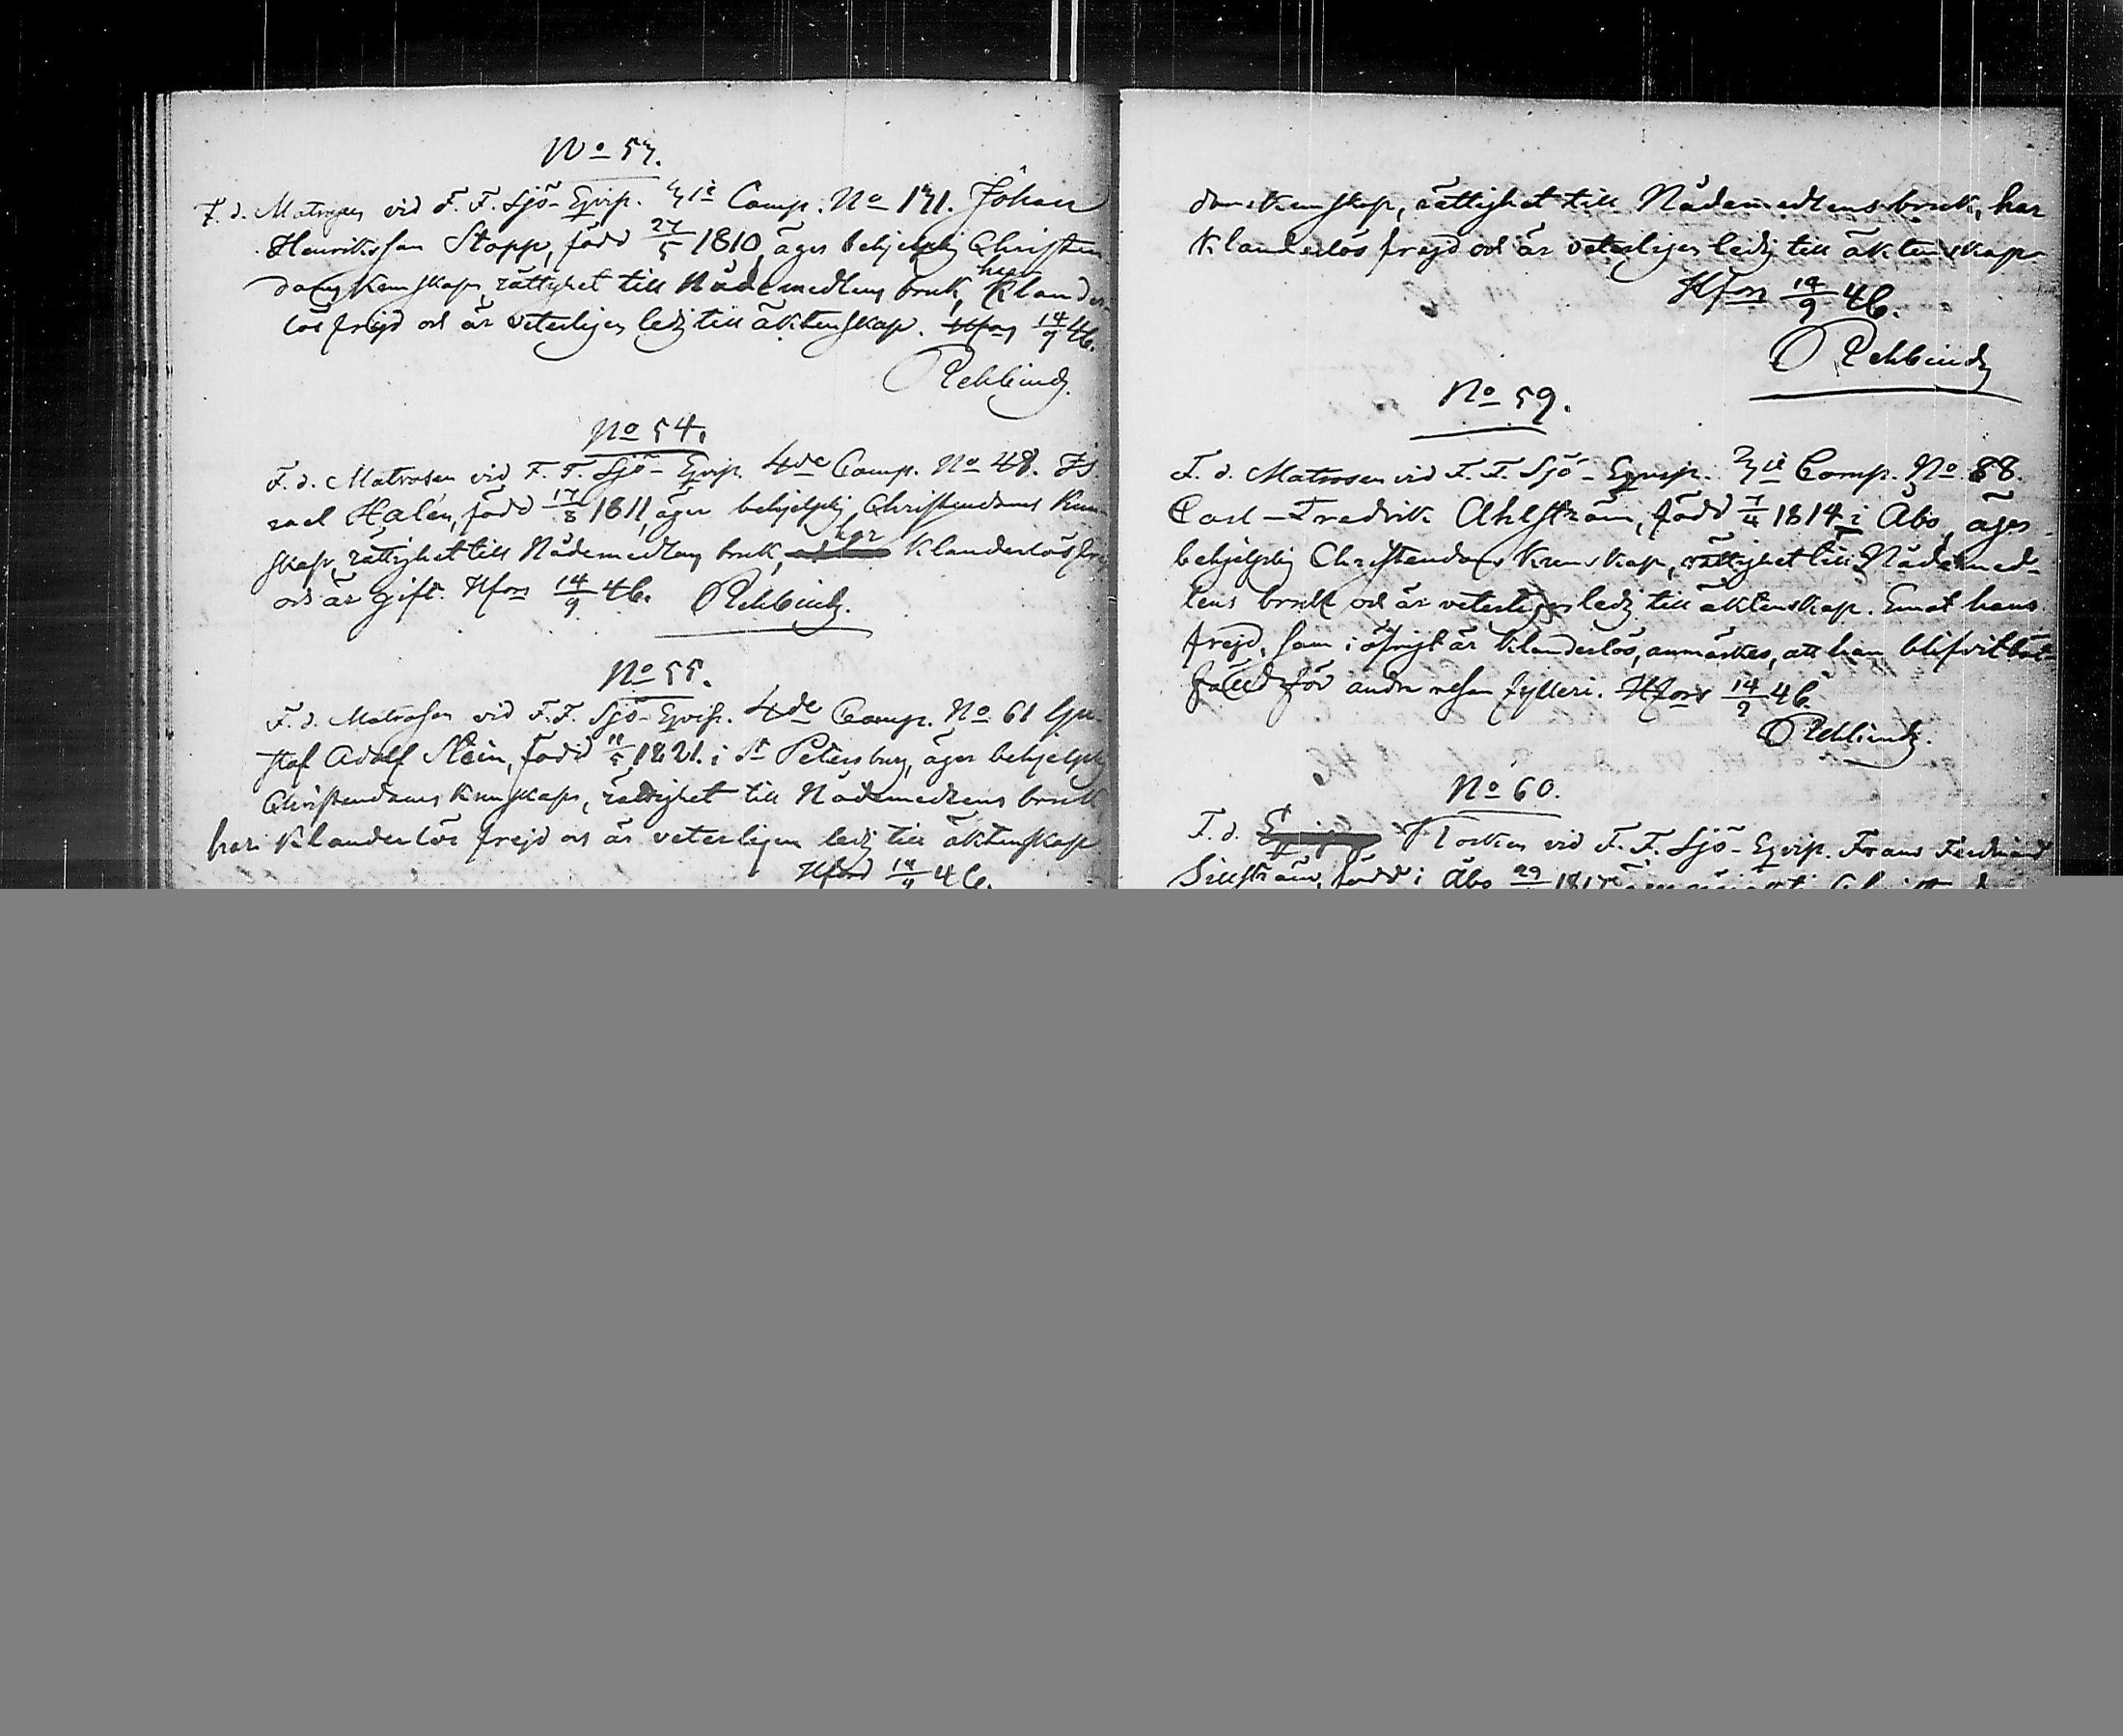 No 53.
F. d. Matrosen vid F. F. Sjö-Eqvip. 3die Comp. No 131. Johan
Henriksson Stopp, född 27/5 1810, äger behjelplig Christen-
doms kunskap, rättighet till Nådemedlens bruk, har klander-
lös frejd och är veterligen ledig till äktenskap. Hfors 14/9 46.
Rehbinder.
No 54.
F. d. Matrosen vid F. F. Sjö-Eqvip. 4de Comp. No 48. Is-
rael Halén, född 17/8 1811, äger behjelplig Christendoms kun-
skap, rättighet till Nådemedlens bruk, har klanderlös frejd
och är gift. Hfors 14/9 46. Rehbinder.
No 55.
F. d. Matrosen vid F. F. Sjö-Eqvip. 4de Comp. No 61 Gu-
staf Adolf Stein, född 1821. i St Petersburg, äger behjelplig
Christendoms kunskap, rättighet till Nådemedlens bruk
har klanderlös frejd och är veterligen ledig till äktenskap
Hfors 14/9 46.
doms kunskap, rättighet till Nådemedlens bruk, har
klanderlös frejd och är veterligen ledig till äktenskap
Hfors 14/9 46.
Rehbinder
No 59.
F. d. Matrosen vid F. F. Sjö-Eqvip. 3die Comp. No 88.
Carl-Fredrik Ahlström, född 1814 i Åbo, äger
behjelplig Christendoms kunskap, rättighet till Nådemed-
lens bruk och är veterligen ledig till äktenskap. Emot hans
frejd, som i öfrigt är klanderlös, anmärkes, att han blifvit böt-
fälld för andra resan fylleri. Hfors 14/9 46.
Rehbinder.
No 60.
F. d. Klockaren vid F. F. Sjö-Eqvip. Frans Ferdinand
Sillström, född i Åbo 29